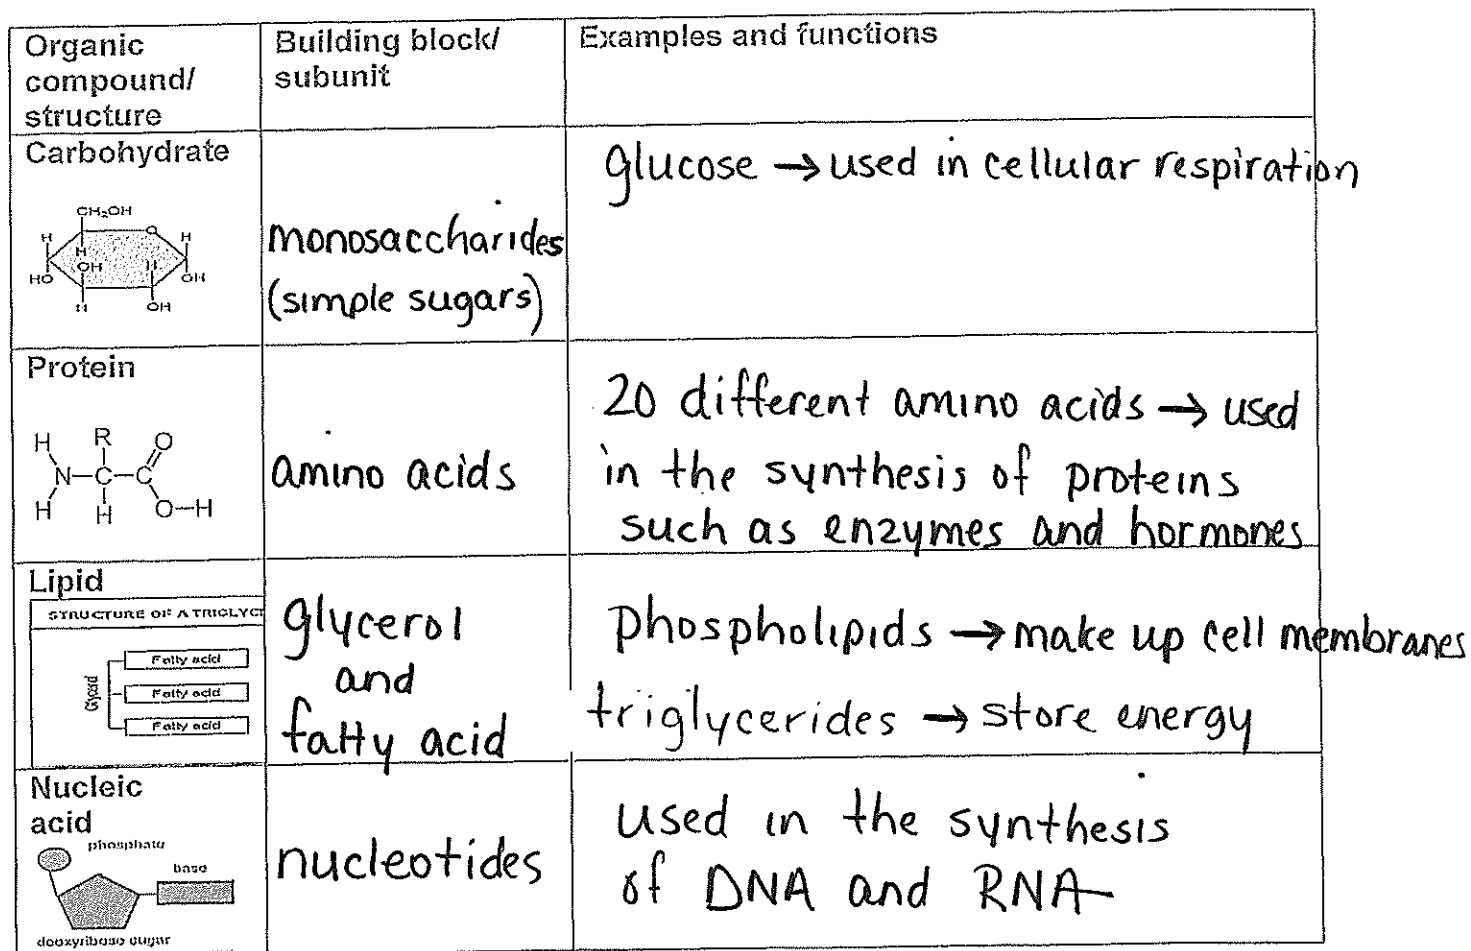 Organic compound/ structure
Building block/ subunit
Examples and functions
Carbohydrate
CH₂OH
H
O
H
H
OH
H
HO
OH
H
OH
monosaccharides
(simple sugars)
glucose → used in cellular respiration
Protein
H
R
O
N
C
C
H
H
O–H
amino acids
20 different amino acids → used
in the synthesis of proteins
such as enzymes and hormones
Lipid
STRUCTURE OF A TRIGLYCE
Glycerol
Fatty acid
Fatty acid
Fatty acid
glycerol
and
fatty acid
phospholipids → make up cell membranes
triglycerides → store energy
Nucleic
acid
phosphate
base
deoxyribose sugar
nucleotides
used in the synthesis
of DNA and RNA